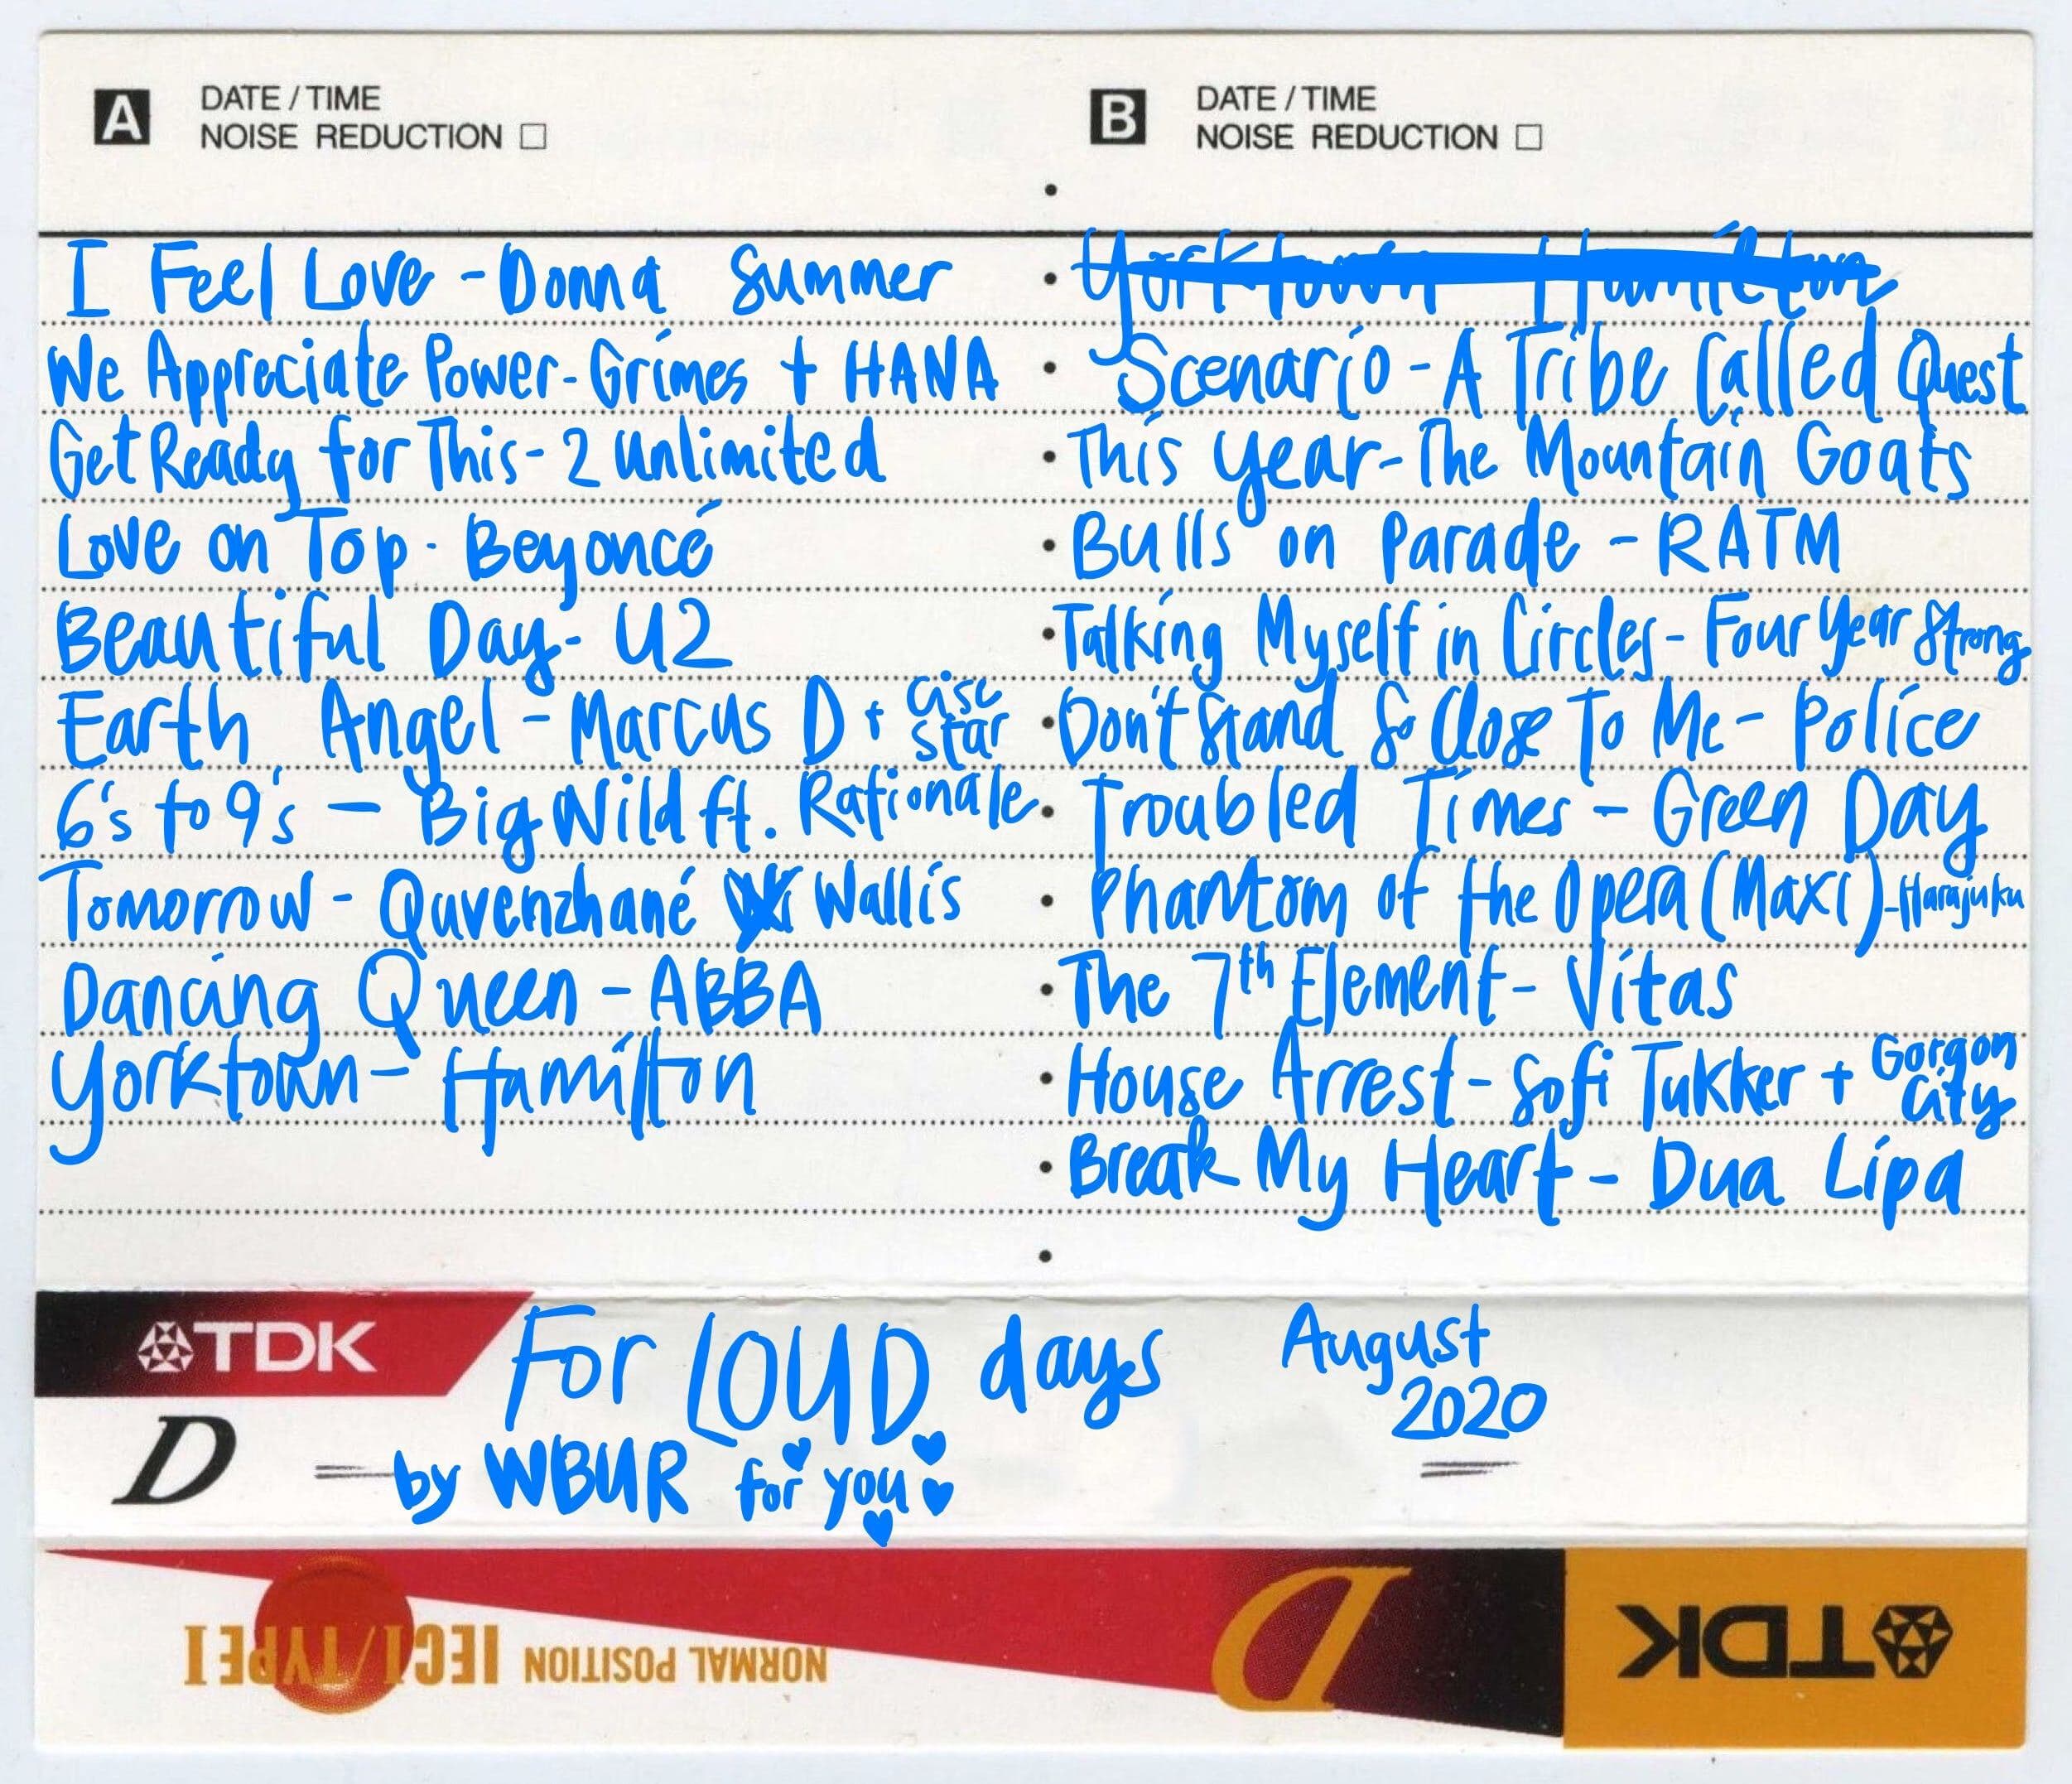 A DATE / TIME
NOISE REDUCTION □
I Feel Love - Donna Summer
We Appreciate Power - Grimes + HANA
Get Ready for This - 2 Unlimited
Love on Top - Beyoncé
Beautiful Day - U2
Earth Angel - Marcus D + Cise Star
6's to 9's — Big Wild ft. Rationale
Tomorrow - Quvenzhané Wallis
Dancing Queen - ABBA
Yorktown - Hamilton
B DATE / TIME
NOISE REDUCTION □
Yorktown Hamilton
• Scenario - A Tribe Called Quest
• This Year - The Mountain Goats
• Bulls on Parade - RATM
• Talking Myself in Circles - Four Year Strong
• Don't Stand So Close To Me - Police
• Troubled Times - Green Day
• Phantom of the Opera (Maxi) - Harajuku
• The 7th Element - Vitas
• House Arrest - Sofi Tukker + Gorgon City
• Break My Heart - Dua Lipa
TDK
For LOUD days August 2020
D — by WBUR for you
NORMAL POSITION IECI/TYPE I
D
TDK